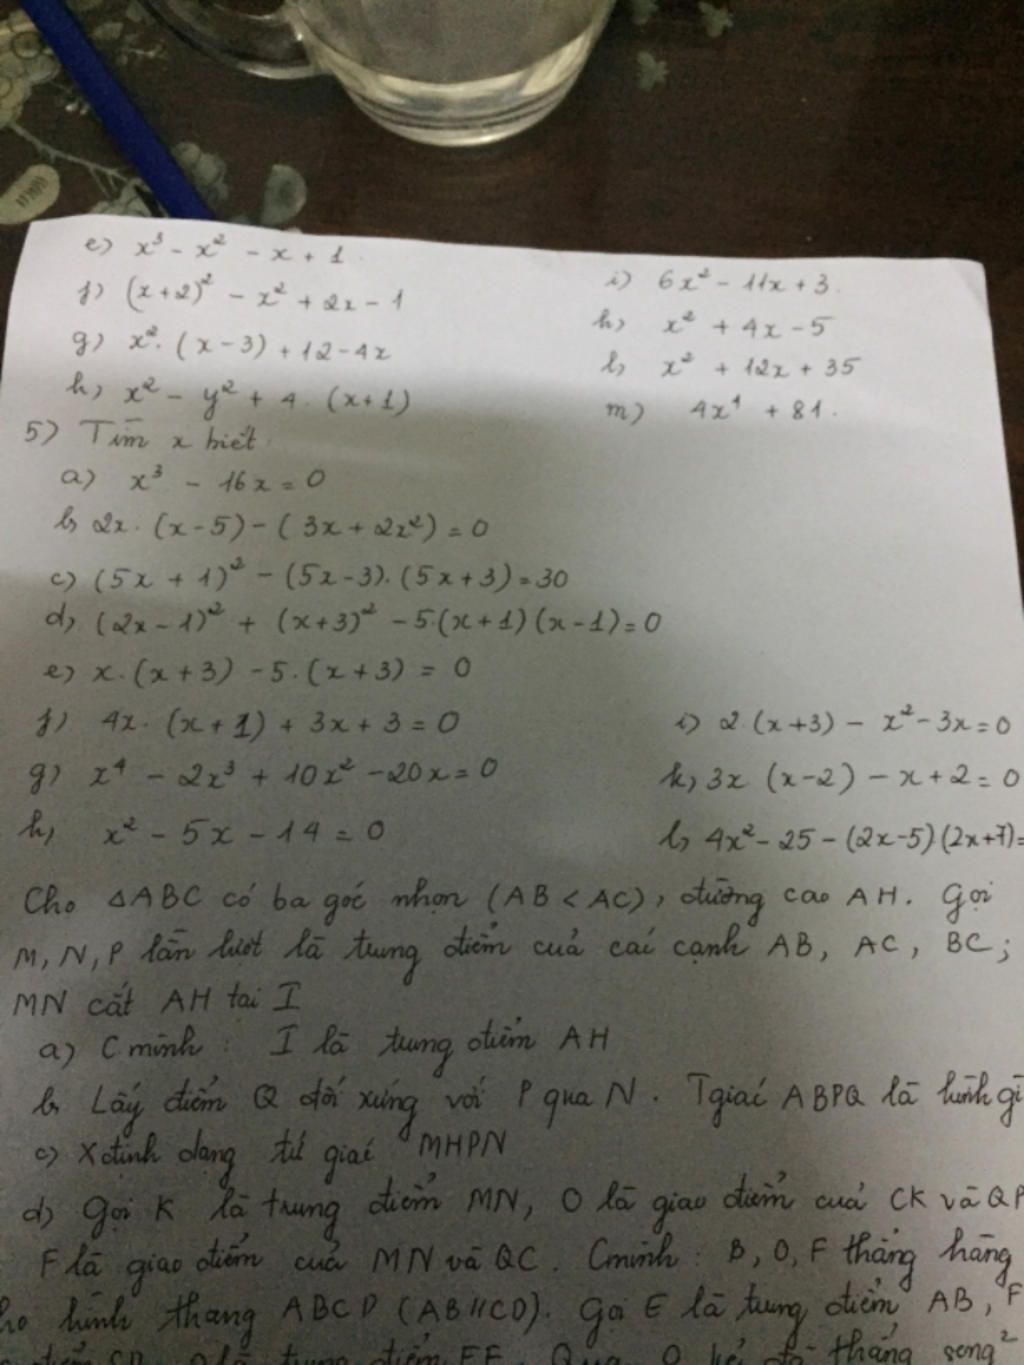 e) x³ - x² - x + 1
f) (x+2)² - x² + 2x - 1
g) x². (x-3) + 12-4x
h) x² - y² + 4. (x+1)
i) 6x² - 11x + 3.
k) x² + 4x - 5
l) x² + 12x + 35
m) 4x⁴ + 81.
5) Tìm x biết
a) x³ - 16x = 0
b) 2x. (x-5) - (3x + 2x²) = 0
c) (5x + 1)² - (5x-3). (5x+3) = 30
d) (2x-1)² + (x+3)² - 5.(x+1)(x-1) = 0
e) x. (x+3) - 5. (x+3) = 0
f) 4x. (x+1) + 3x + 3 = 0
g) x⁴ - 2x³ + 10x² - 20x = 0
h) x² - 5x - 14 = 0
i) 2. (x+3) - x² - 3x = 0
k) 3x (x-2) - x + 2 = 0
l) 4x² - 25 - (2x-5)(2x+7) =
Cho ΔABC có ba góc nhọn (AB < AC), đường cao AH. Gọi
M, N, P lần lượt là trung điểm cuả các cạnh AB, AC, BC;
MN cắt AH tại I
a) C minh : I là trung điểm AH
b) Lấy điểm Q đối xứng với P qua N. Tgiác ABPQ là hình gì
c) Xđịnh dạng tứ giác MHPN
d) Gọi K là trung điểm MN, O là giao điểm cuả CK và QP
F là giao điểm cuả MN và QC. Cminh : B, O, F thẳng hàng
ho hình thang ABCD (AB//CD). Gọi E là trung điểm AB, F
trung điểm EF. Qua O kẻ thẳng song²